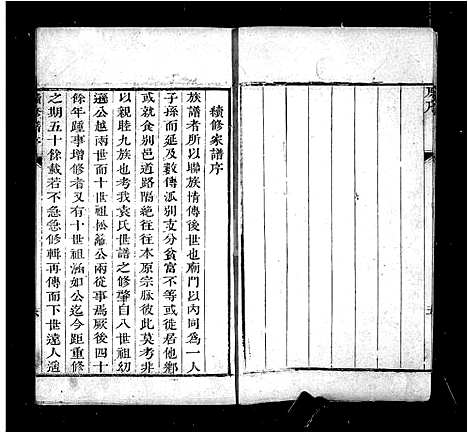 續修家譜序
族譜者所以聯族情傳後世也廟門以內同為一人
子孫而延及數傳派別支分貧富不等或徙居他鄉
或就食別邑道路隔絶往往本原宗脉彼此莫考非
以親睦九族也考我袁氏世譜之修肇自八世祖幼
遜公越兩世而十世祖松巖公兩從事焉厥後四十
餘年踵事增修者又有十世祖涵如公迄今距重修
之期五十餘載若不急急修輯再傳而下世遠人湮
續修譜序